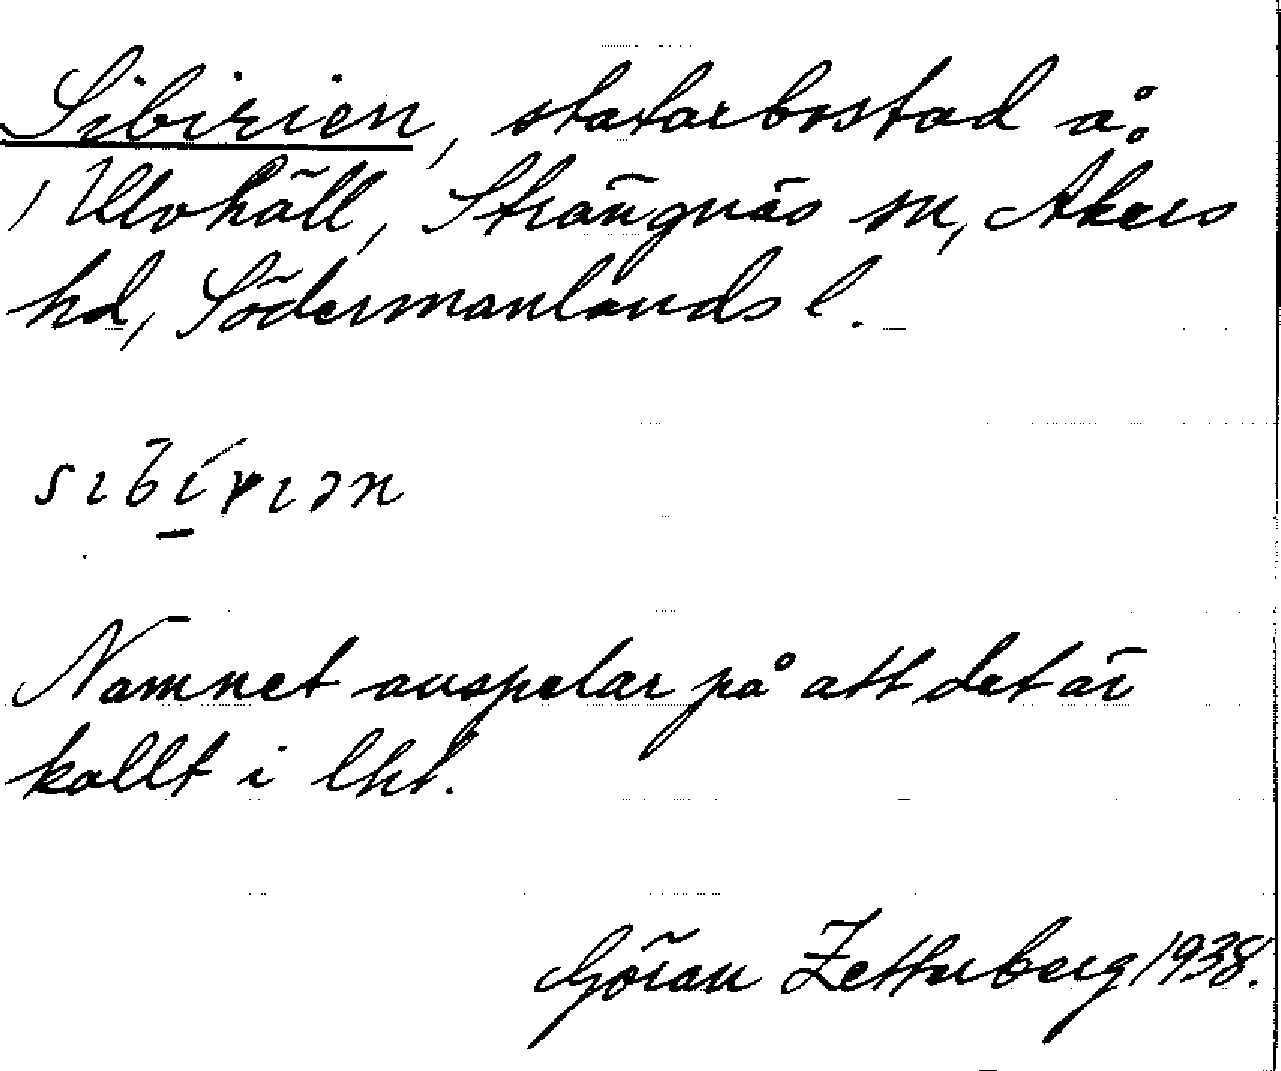 Sibirien, statarbostad å
Ulvhäll, Strängnäs sn, Åkers
hd, Södermanlands l.
sibíriən
Namnet anspelar på att det är
kallt i lht.
Göran Zetterberg 1938.